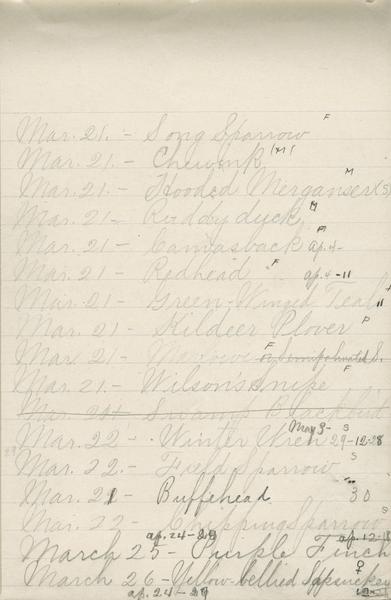 Mar. 21.- Song Sparrow F
Mar. 21.- Chewink (M)
Mar. 21.- Hooded Merganser(s) M
Mar. 21- Ruddy duck M
Mar. 21- Canvasback F ap. 4-
Mar. 21- Redhead F ap. 4-11
Mar. 21- Green-Winged Teal "
Mar. 21- Kildeer Plover P
Mar. 21- F
Mar. 21.- Wilson's Snipe F
Swamp Blackbird
Mar. 22-. Winter Wren May 3- S 29-12-28
Mar. 22.- Field Sparrow S
Mar. 21 Buffehead 30
Mar. 22- Chipping Sparrow S
March 25- Purple Finch ap. 24-29 ap. 12-18
March 26-Yellow-bellied Sapsucker ♀
ap. 24-29